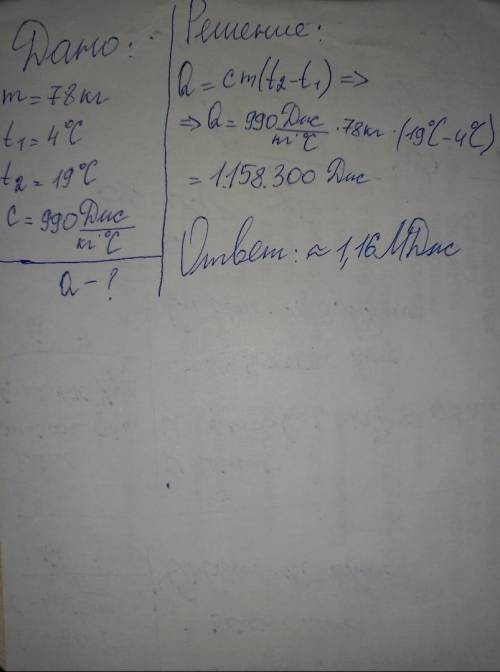 Дано:
m = 78 кг
t₁ = 4°C
t₂ = 19°C
c = 990 Дж/кг·°C
Q - ?
Решение:
Q = cm(t₂ - t₁) =>
=> Q = 990 Дж/кг·°C · 78 кг · (19°C - 4°C)
= 1.158.300 Дж
Ответ: ≈ 1,16 МДж